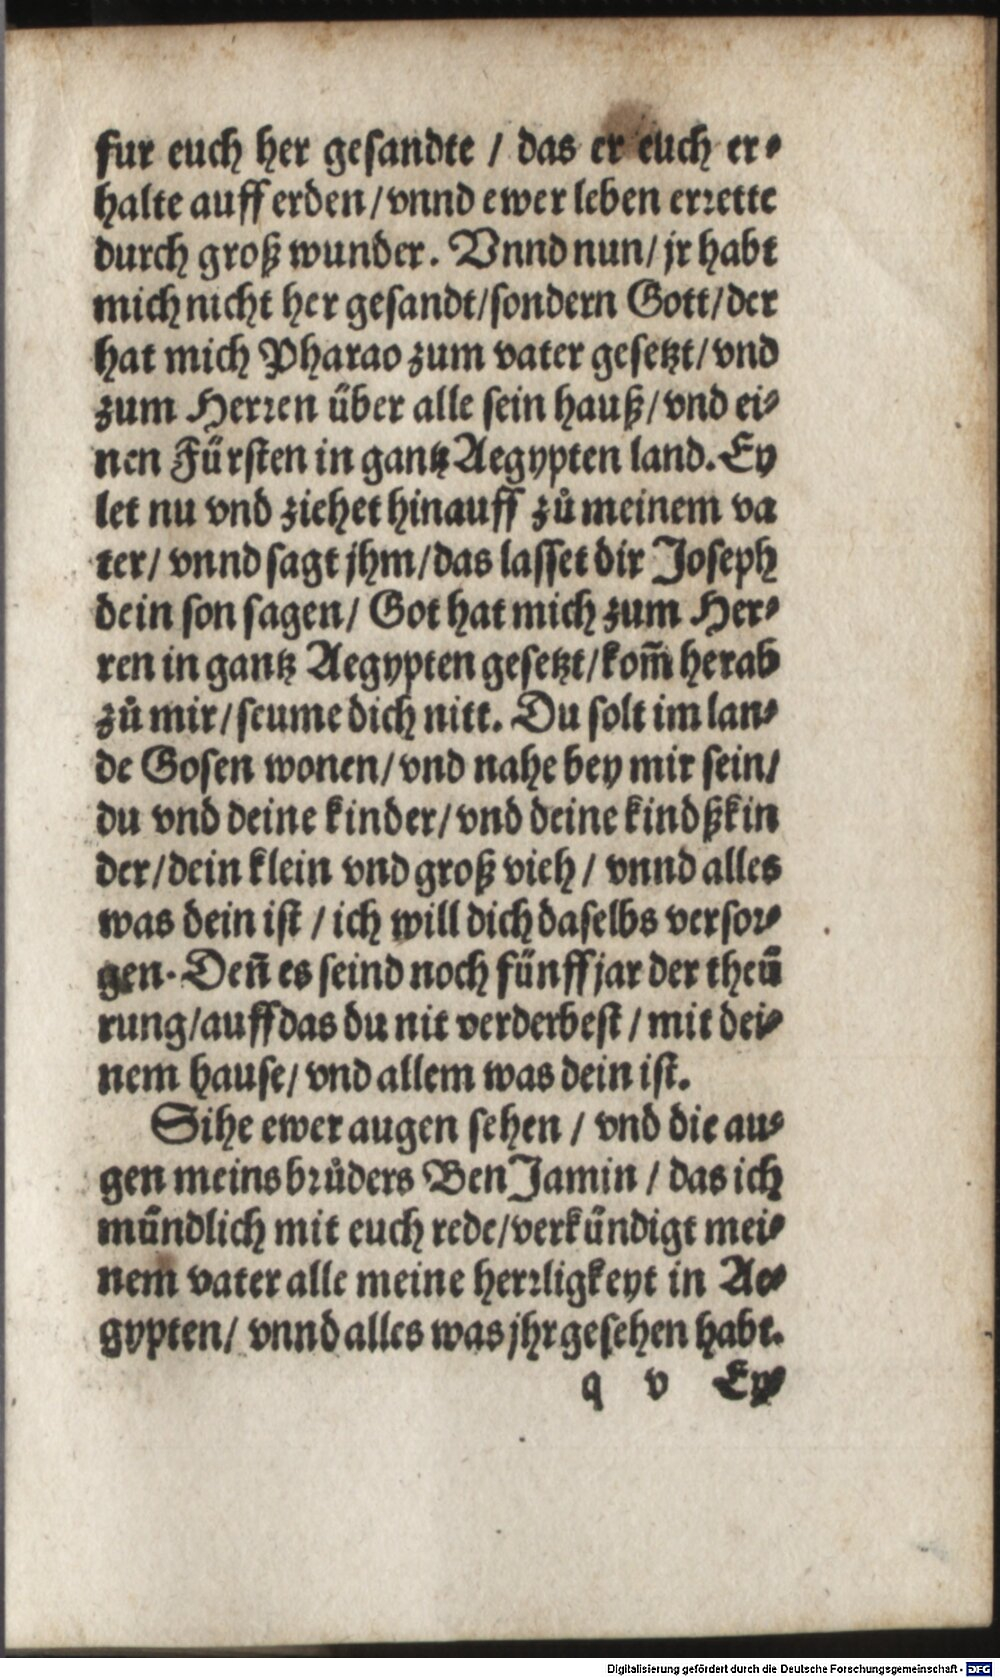 fur euch her gesandte / das er euch er⸗
halte auff erden / vnnd ewer leben errette
durch groß wunder. Vnnd nun / jr habt
mich nicht her gesandt / sondern Gott / der
hat mich Pharao zum vater gesetzt / vnd
zum Herren über alle sein hauß / vnd ei⸗
nen Fürsten in gantz Aegypten land. Ey
let nu vnd ziehet hinauff zů meinem va
ter / vnnd sagt jhm / das lasset dir Joseph
dein son sagen / Got hat mich zum Her⸗
ren in gantz Aegypten gesetzt / kom̃ herab
zů mir / seume dich nitt. Du solt im lan⸗
de Gosen wonen / vnd nahe bey mir sein /
du vnd deine kinder / vnd deine kindßkin
der / dein klein vnd groß vieh / vnnd alles
was dein ist / ich will dich daselbs versor⸗
gen. Deñ es seind noch fünff jar der theü
rung / auff das du nit verderbest / mit dei⸗
nem hause / vnd allem was dein ist.
Sihe ewer augen sehen / vnd die au⸗
gen meins brůders Ben Jamin / das ich
mündlich mit euch rede / verkündigt mei⸗
nem vater alle meine herrligkeyt in Ae⸗
gypten / vnnd alles was jhr gesehen habt.
q v Ey⸗
Digitalisierung gefördert durch die Deutsche Forschungsgemeinschaft - DFG